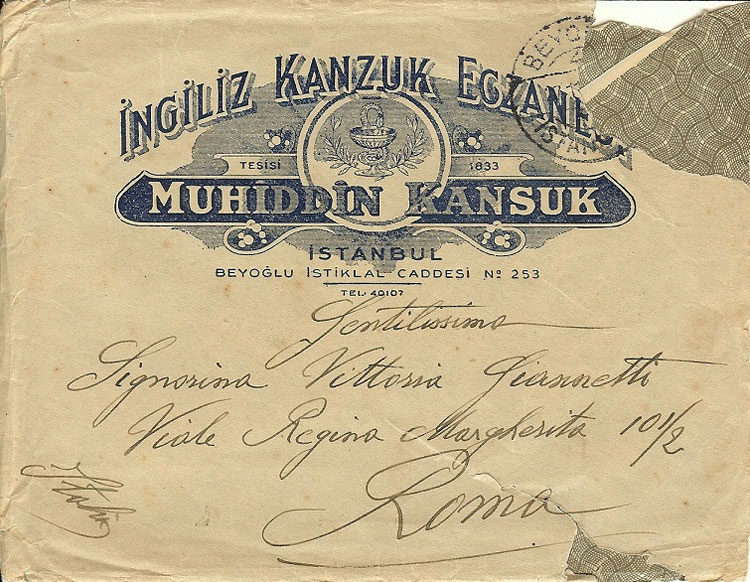 BEYO
İSTAN
İNGİLİZ KANZUK ECZANESİ
TESİSİ 1833
MUHİDDİN KANSUK
İSTANBUL
BEYOĞLU İSTİKLAL CADDESİ Nº 253
TEL: 40107
Gentilissima
Signorina Vittoria Giannetti
Viale Regina Margherita 101/2
Roma
Italia